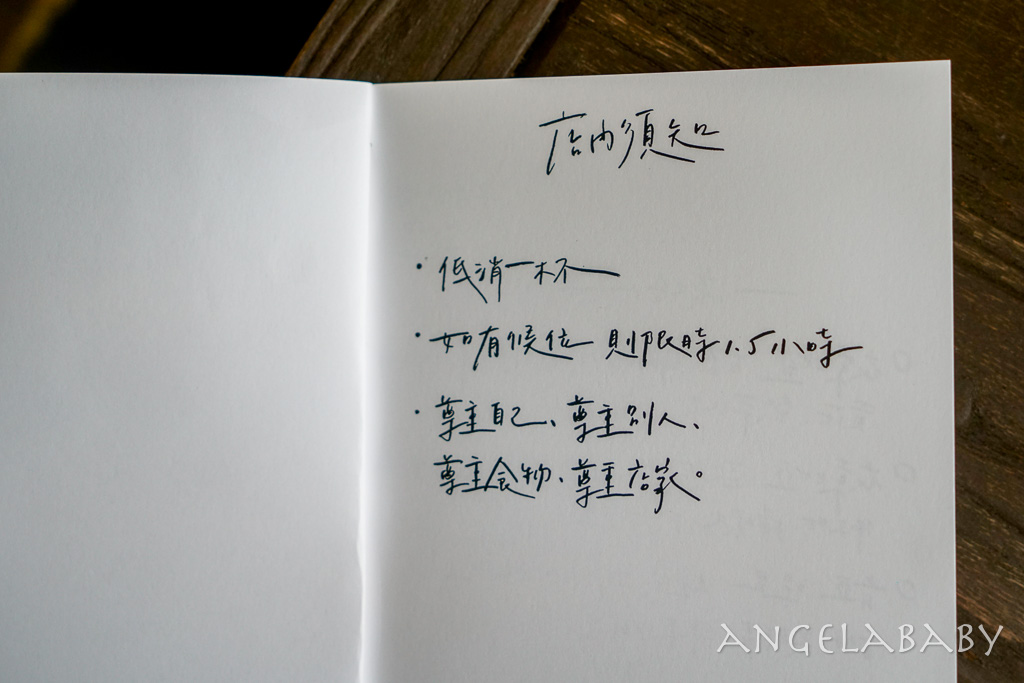 店內須知
・低消一杯
・如有候位 則限時1.5小時
・尊重自己、尊重別人、
尊重食物、尊重店家。
ANGELABABY